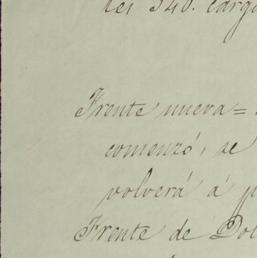 del 340. carg
Frente nueva =
comenzó, se
volverá á p
Frente de Dol